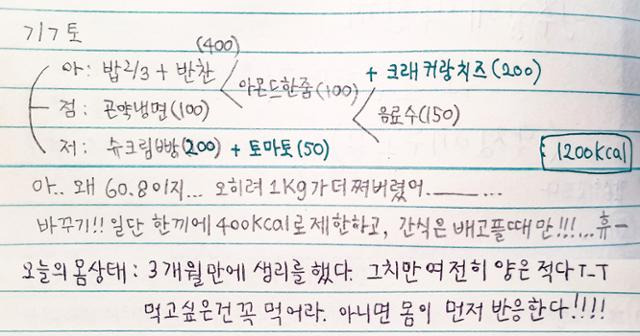 7/7 토
(400)
아: 밥2/3 + 반찬 < 아몬드한줌(100) + 크래커랑치즈(200)
점: 곤약냉면(100) < 음료수(150)
저: 슈크림빵(200) + 토마토(50)
1200kcal
아.. 왜 60.8이지... 오히려 1kg가 더 쪄버렸어.____...
바꾸기!! 일단 한끼에 400kcal로 제한하고, 간식은 배고플때만!!!...휴-
오늘의 몸상태 : 3개월만에 생리를 했다. 그치만 여전히 양은 적다 T_T
먹고싶은건 꼭 먹어라. 아니면 몸이 먼저 반응한다!!!!